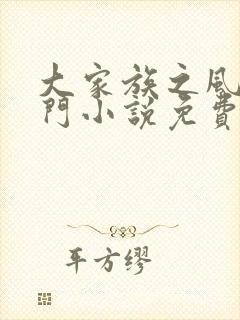 大家族之風
門小說免費
平方繆